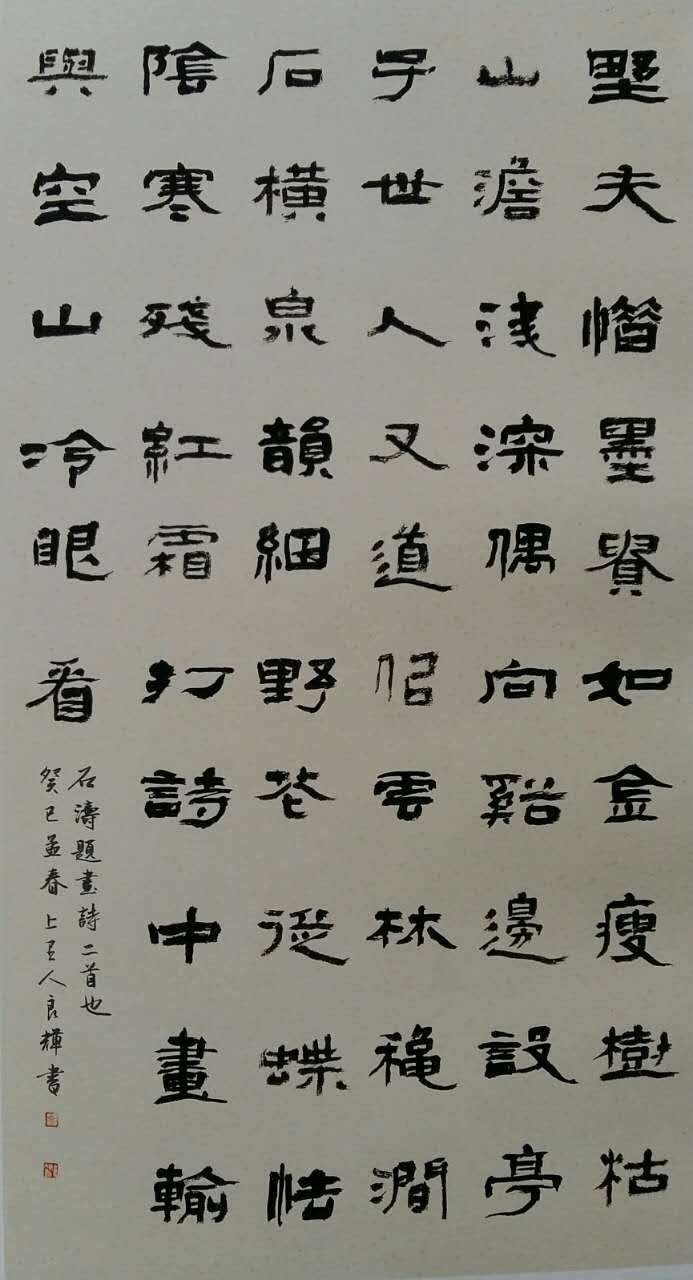 野夫惜墨貴如金瘦樹枯
山澹淺深偶向谿邊設亭
子世人又道似雲林穐澗
石橫泉韻細野花從蝶怯
陰寒殘紅霜打詩中畫輸
與空山冷眼看
石濤題畫詩二首也
癸巳孟春上王人良輝書